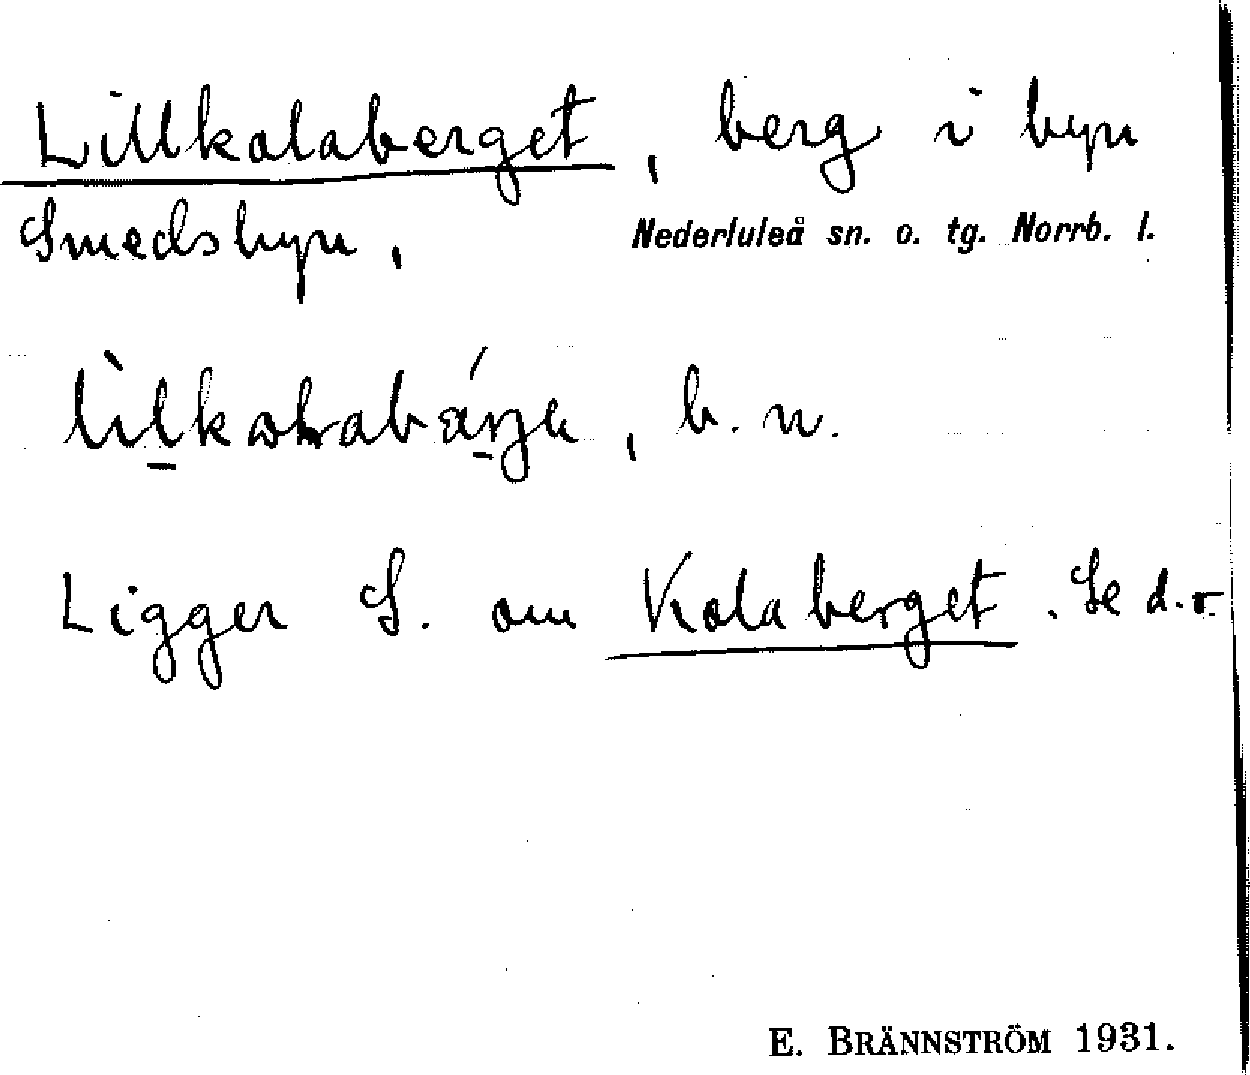 Lillkolaberget, berg i byn
Smedsbyn, Nederluleå sn. o. tg. Norrb. l.
b. n.
Ligger S. om Kolaberget. Se d.o.
E. BRÄNNSTRÖM 1931.